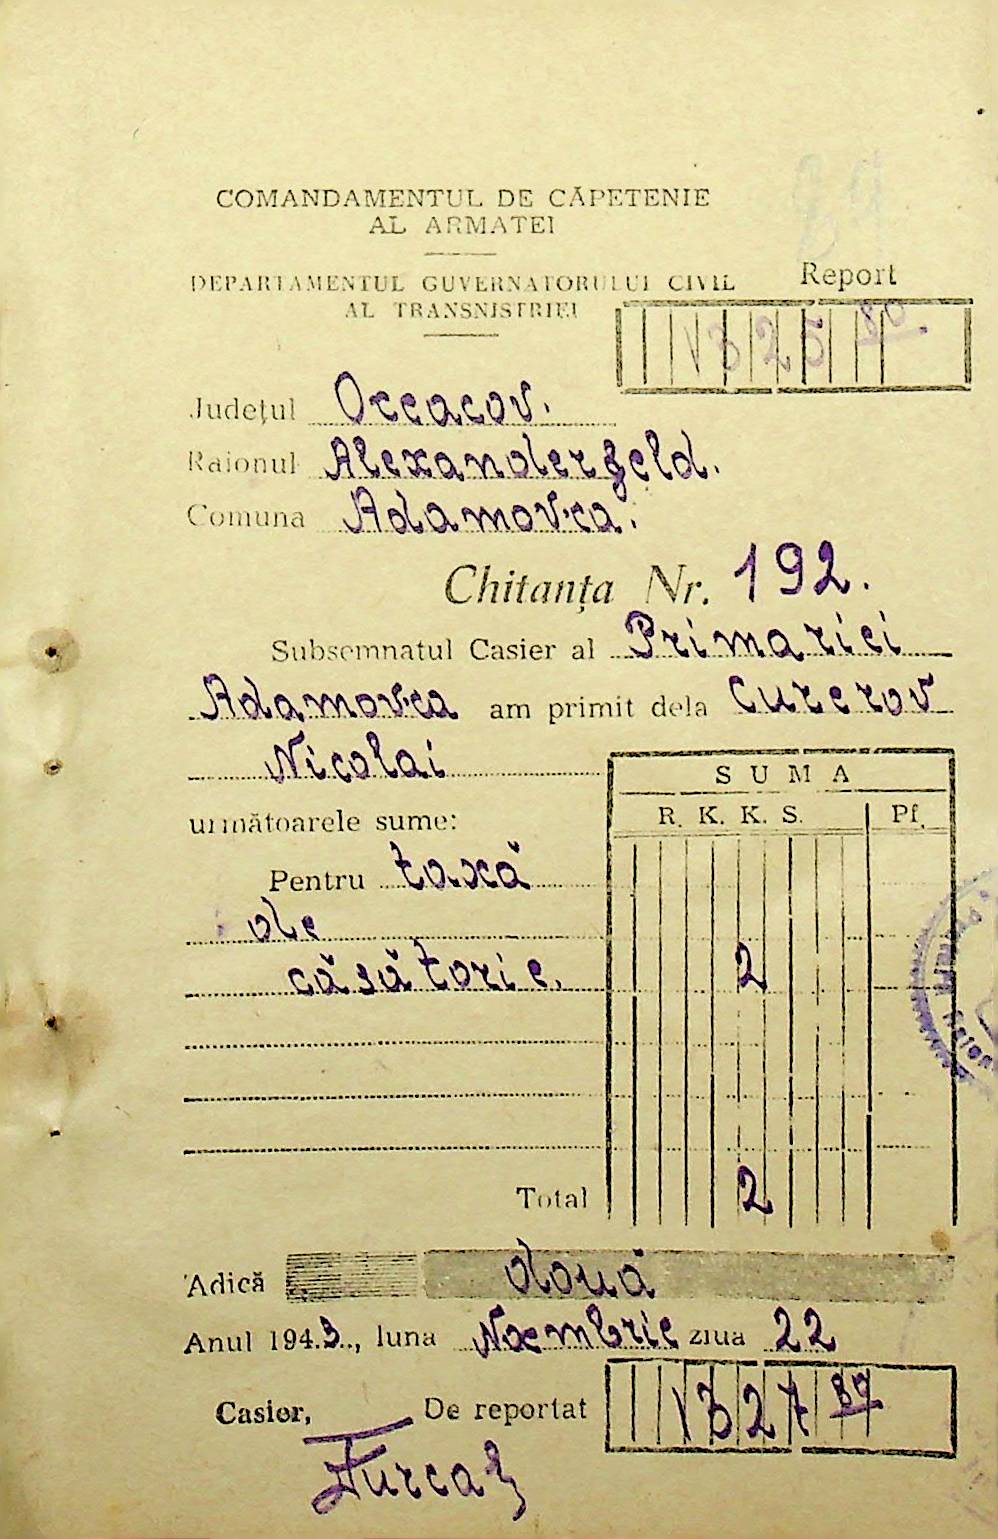 COMANDAMENTUL DE CĂPETENIE
AL ARMATEI
DEPARTAMENTUL GUVERNATORULUI CIVIL
AL TRANSNISTRIEI
Report
1325 80
Județul Oceacov.
Raionul Alexanderfeld.
Comuna Adamovca.
Chitanța Nr. 192.
Subsemnatul Casier al Primariei
Adamovca am primit dela Curerov
Nicolai
următoarele sume:
SUMA
R. K. K. S. Pf.
Pentru taxă
de
căsătorie. 2
Total 2
Adică două
Anul 1943., luna Noembrie ziua 22
Casier, De reportat 1327 80